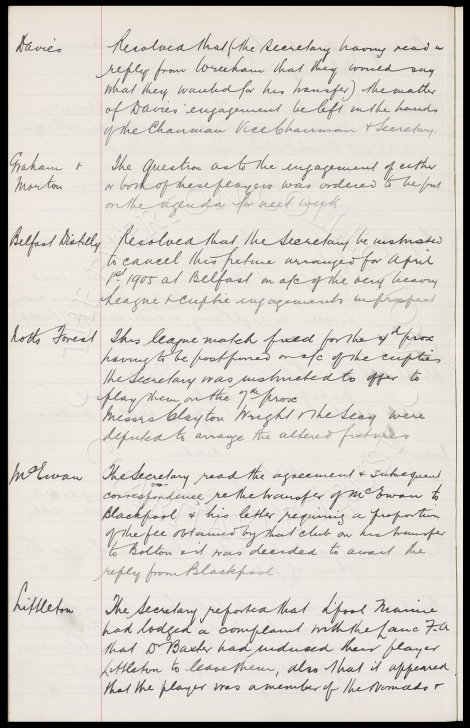 Davies Resolved that (the Secretary having read a
reply from Wrexham that they would say
what they wanted for his transfer) the matter
of Davies' engagement be left in the hands
of the Chairman Vice Chairman & Secretary.
Graham & The Question as to the engagement of either
Morton or both of these players was ordered to be put
on the agenda for next week
Belfast Distilly Resolved that the Secretary be instructed
to cancel this fixture arranged for April
1st 1905 at Belfast on a/c of the very heavy
League & cuptie engagements in prospect
Notts Forest This league match fixed for the 4th prox
having to be postponed on a/c of the cupties
the Secretary was instructed to offer to
play them on the 9th prox
Messrs Clayton Wright & the Secy were
deputed to arrange the altered fixtures
McEwan The Secretary read the agreement & subsequent
correspondence re the transfer of McEwan to
Blackpool & his letter requiring a proportion
of the fee obtained by that club on his transfer
to Bolton & it was decided to await the
reply from Blackpool
Littleton The Secretary reported that Lpool Marine
had lodged a complaint with the Lanc F.A
that Dr Baxter had induced their player
Littleton to leave them, also that it appeared
that the player was a member of the Nomads &